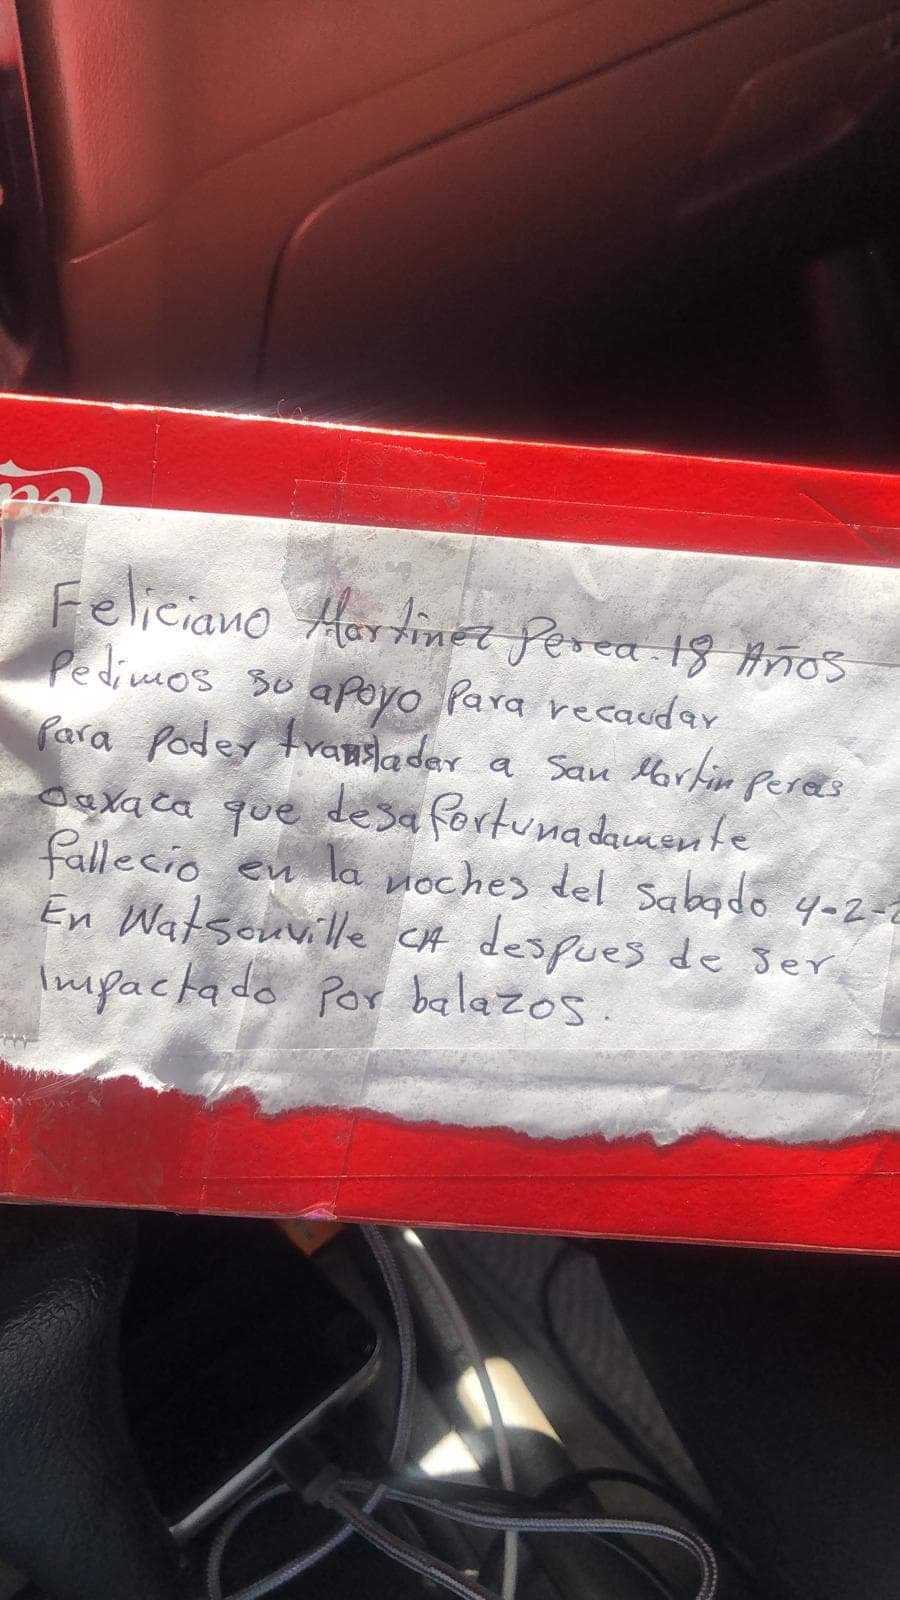 Feliciano Martinez Perea. 18 Años
Pedimos su apoyo Para recaudar
Para Poder transladar a San Martin peras
Oaxaca que desafortunadamente
fallecio en la noches del Sabado 4-2-2
En Watsonville CA despues de ser
Impactado Por balazos.